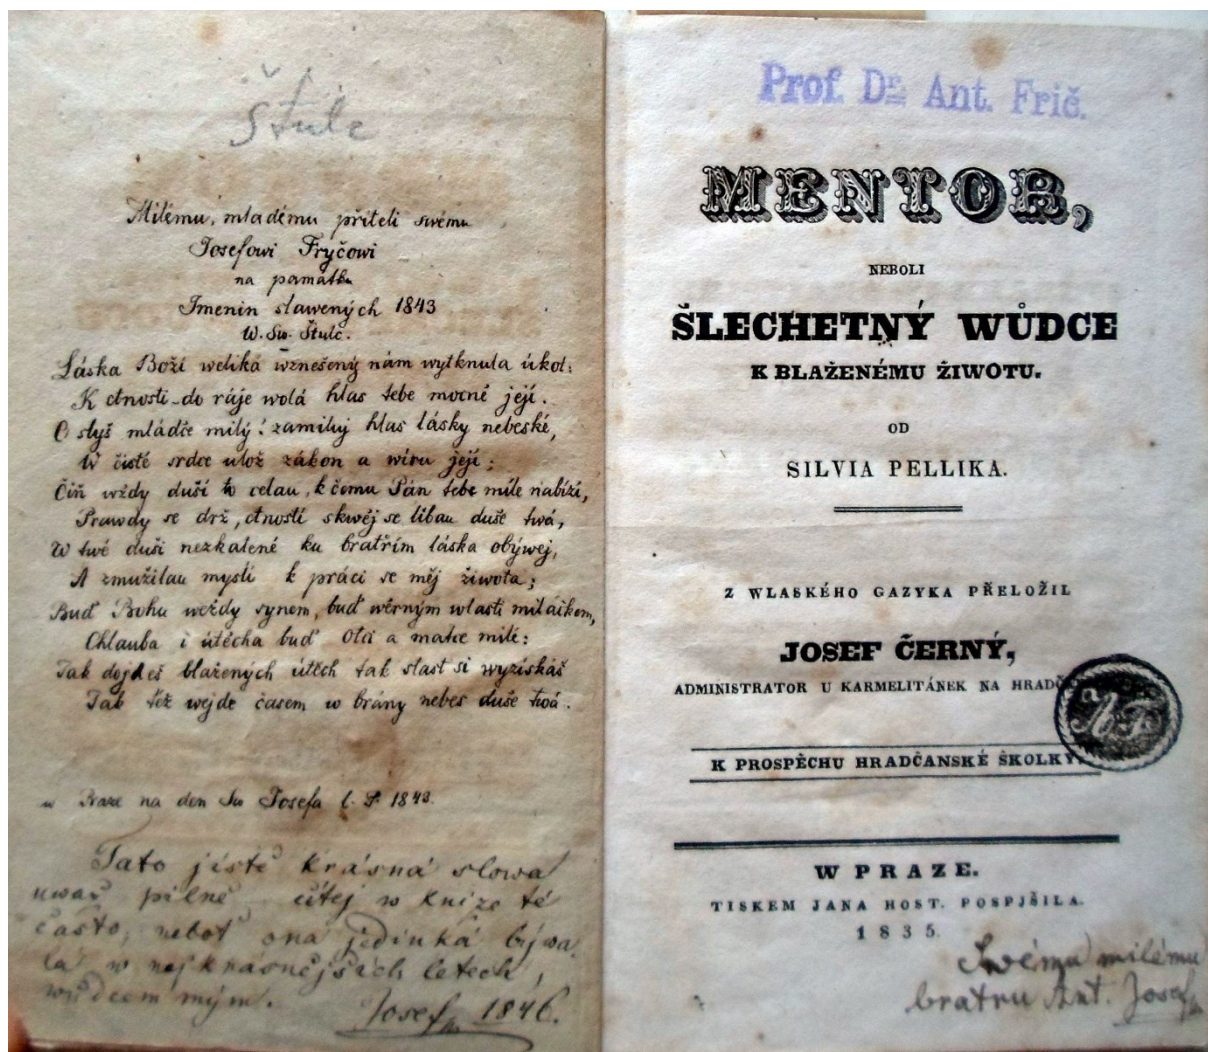 Štulc
Milému, mladému příteli swému
Josefowi Fryčowi
na památku
Jmenin slawených 1843
W. Sw. Štulc.
Láska Boží weliká wznešený nám wytknula úkol:
K ctnosti do ráje wolá hlas tebe mocně její.
O slyš mládče milý! zamiluj hlas lásky nebeské,
W čisté srdce ulož zákon a wíru její;
Čiň wždy duší to celau, k čemu Pán tebe míle nabízí,
Prawdy se drž, ctností skwěj se libau duše twá,
W twé duši nezkalené ku bratřím láska obýwej,
A zmužilau myslí k práci se měj žiwota;
Buď Bohu weždy synem, buď wěrným wlasti miláčkem,
Chlauba i útěcha buď otci a matce milé:
Tak dojdeš blažených útěch tak slast si wyzískáš
Tak též wejde časem w brány nebes duše twá.
w Praze na den Sw Josefa l. P. 1843.
Tato jistě krásná slowa
uwaž pilně čítej w knize té
často, neboť ona jedinká býwa-
la w nejkrásnějších letech,
wůdcem mým.
Josef 1846.
Prof. Dr. Ant. Frič.
MENTOR,
NEBOLI
ŠLECHETNÝ WŮDCE
K BLAŽENÉMU ŽIWOTU.
OD
SILVIA PELLIKA.
Z WLASKÉHO GAZYKA PŘELOŽIL
JOSEF ČERNÝ,
ADMINISTRATOR U KARMELITÁNEK NA HRADČ
AF
K PROSPĚCHU HRADČANSKÉ ŠKOLKY.
W PRAZE.
TISKEM JANA HOST. POSPJŠILA.
1835.
Swému milému
bratru Ant. Josef